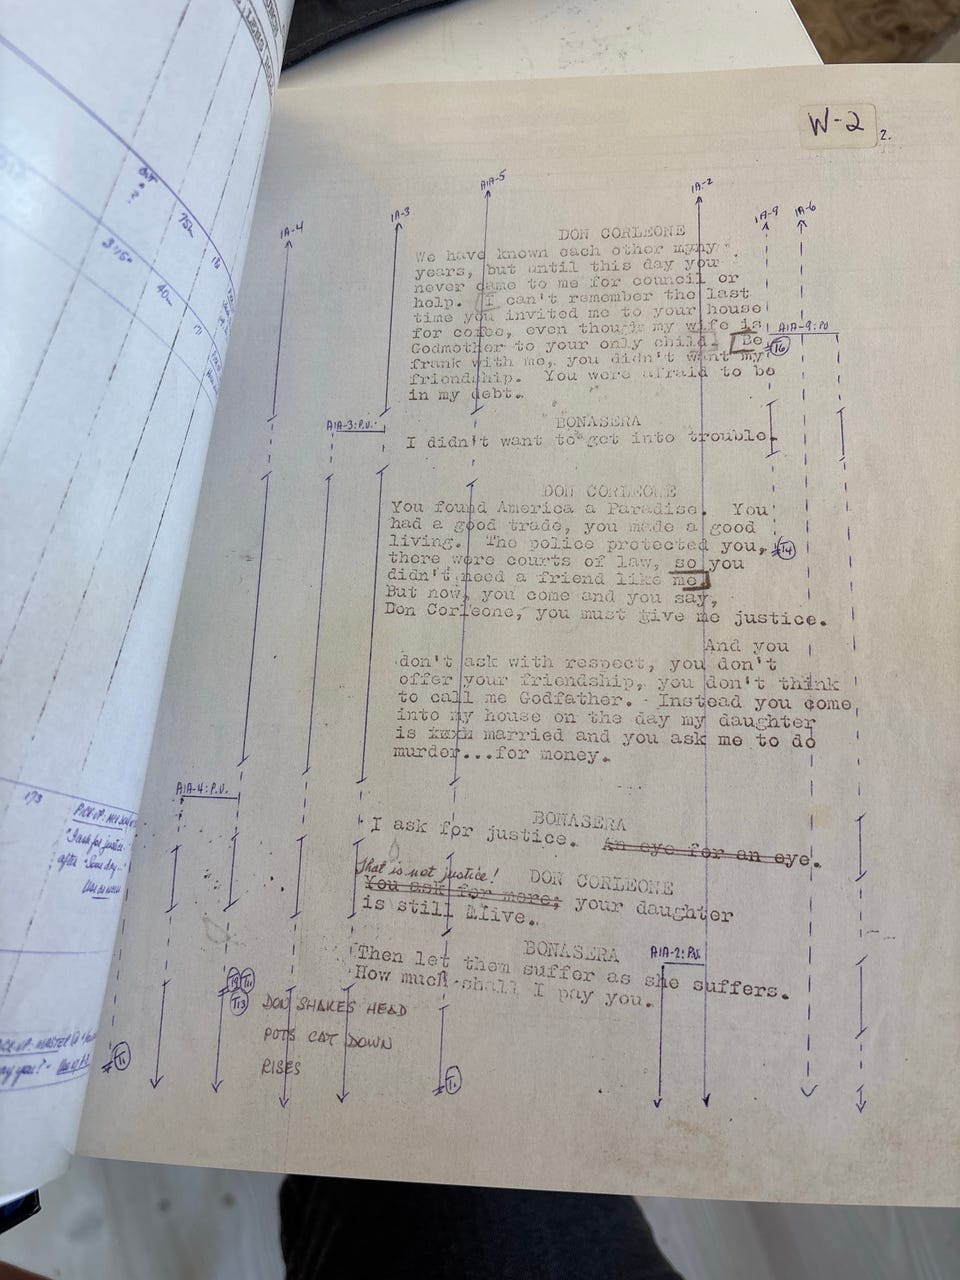 W-2
2.
A1A-5
1A-2
1A-3
1A-9
1A-6
1A-4
DON CORLEONE
We have known each other myny
years, but until this day you
never came to me for council or
help. I can't remember the last
time you invited me to your house
for coffee, even though my wife is
A1A-9:PU
Godmother to your only child. Be
T6
frank with me, you didn't want my
friendship. You were afraid to be
in my debt.
BONASERA
A1A-3:P.U.
I didn't want to get into trouble.
DON CORLEONE
You found America a Paradise. You
had a good trade, you made a good
living. The police protected you,
T4
there were courts of law, so you
didn't need a friend like me.
But now, you come and you say,
Don Corleone, you must give me justice.
And you
don't ask with respect, you don't
offer your friendship, you don't think
to call me Godfather. Instead you come
into my house on the day my daughter
is married and you ask me to do
murder...for money.
A1A-4:P.U.
BONASERA
I ask for justice. An eye for an eye.
That is not justice! DON CORLEONE
You ask for more; your daughter
is still alive.
BONASERA
A1A-2:P.U.
Then let them suffer as she suffers.
How much shall I pay you.
T9 T11
T13
DON SHAKES HEAD
PUTS CAT DOWN
RISES
T1
T1
OUT
?
752
40
171
173
"I ask for justice
after "Some day...
PICK-UP: MASTER @
pay you?"